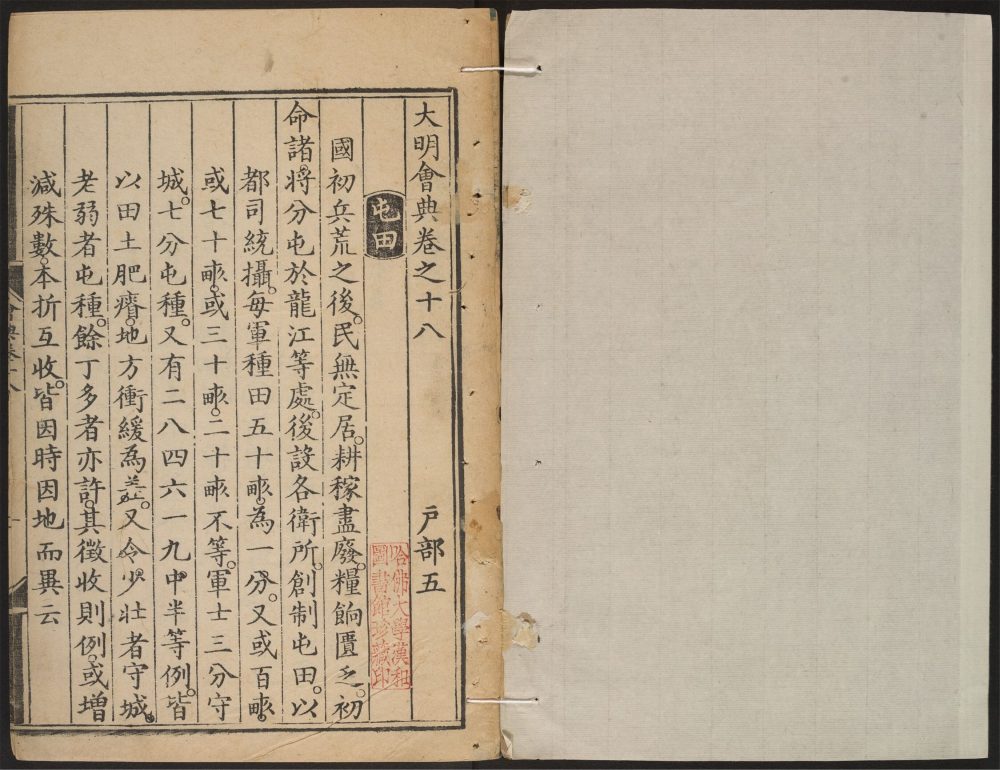 大明會典卷之十八
戶部五
哈佛大學漢和
圖書館珍藏印
屯田
國初兵荒之後。民無定居。耕稼盡廢。糧餉匱乏。初
命諸將分屯於龍江等處。後設各衛所。創制屯田。以
都司統攝。每軍種田五十畝。為一分。又或百畝。
或七十畝。或三十畝。二十畝不等。軍士三分守
城。七分屯種。又有二八四六一九中半等例。皆
以田土肥瘠。地方衝緩為差。又令少壯者守城。
老弱者屯種。餘丁多者亦許。其徵收則例。或增
減殊數。本折互收。皆因時因地而異云